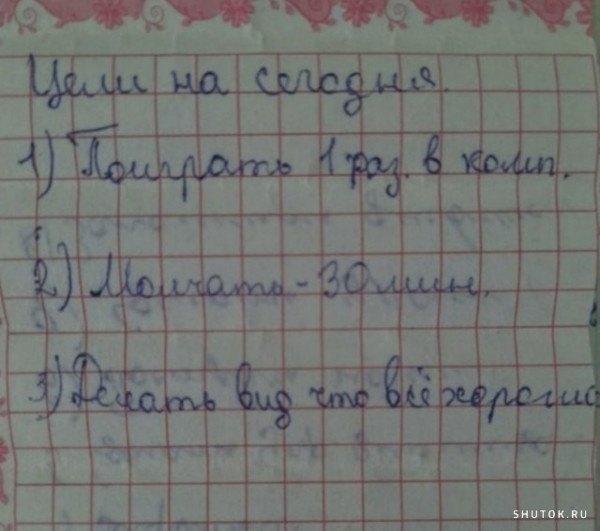 Цели на сегодня.
1) Поиграть 1 раз. в комп.
2) Молчать - 30 мин.
3) Делать вид что всё хорошо
SHUTOK.RU